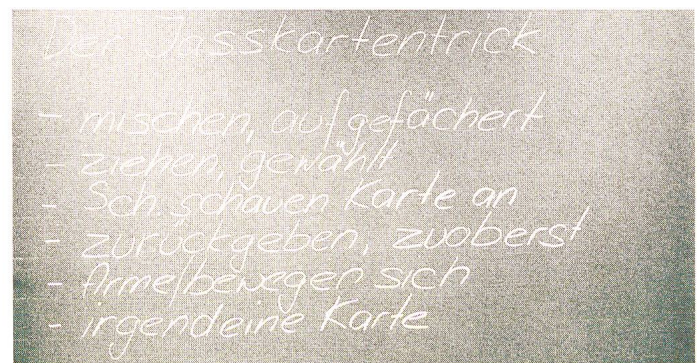 Der Jasskartentrick
- mischen, aufgefächert
- ziehen, gewählt
- Sch. schauen Karte an
- zurückgeben, zuoberst
- Ärmelbewegen sich
- irgendeine Karte